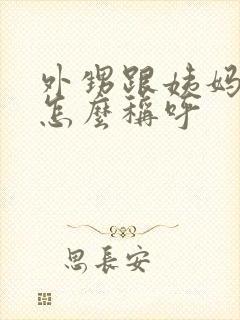 外甥跟姨妈
怎麼稱呼
思長安